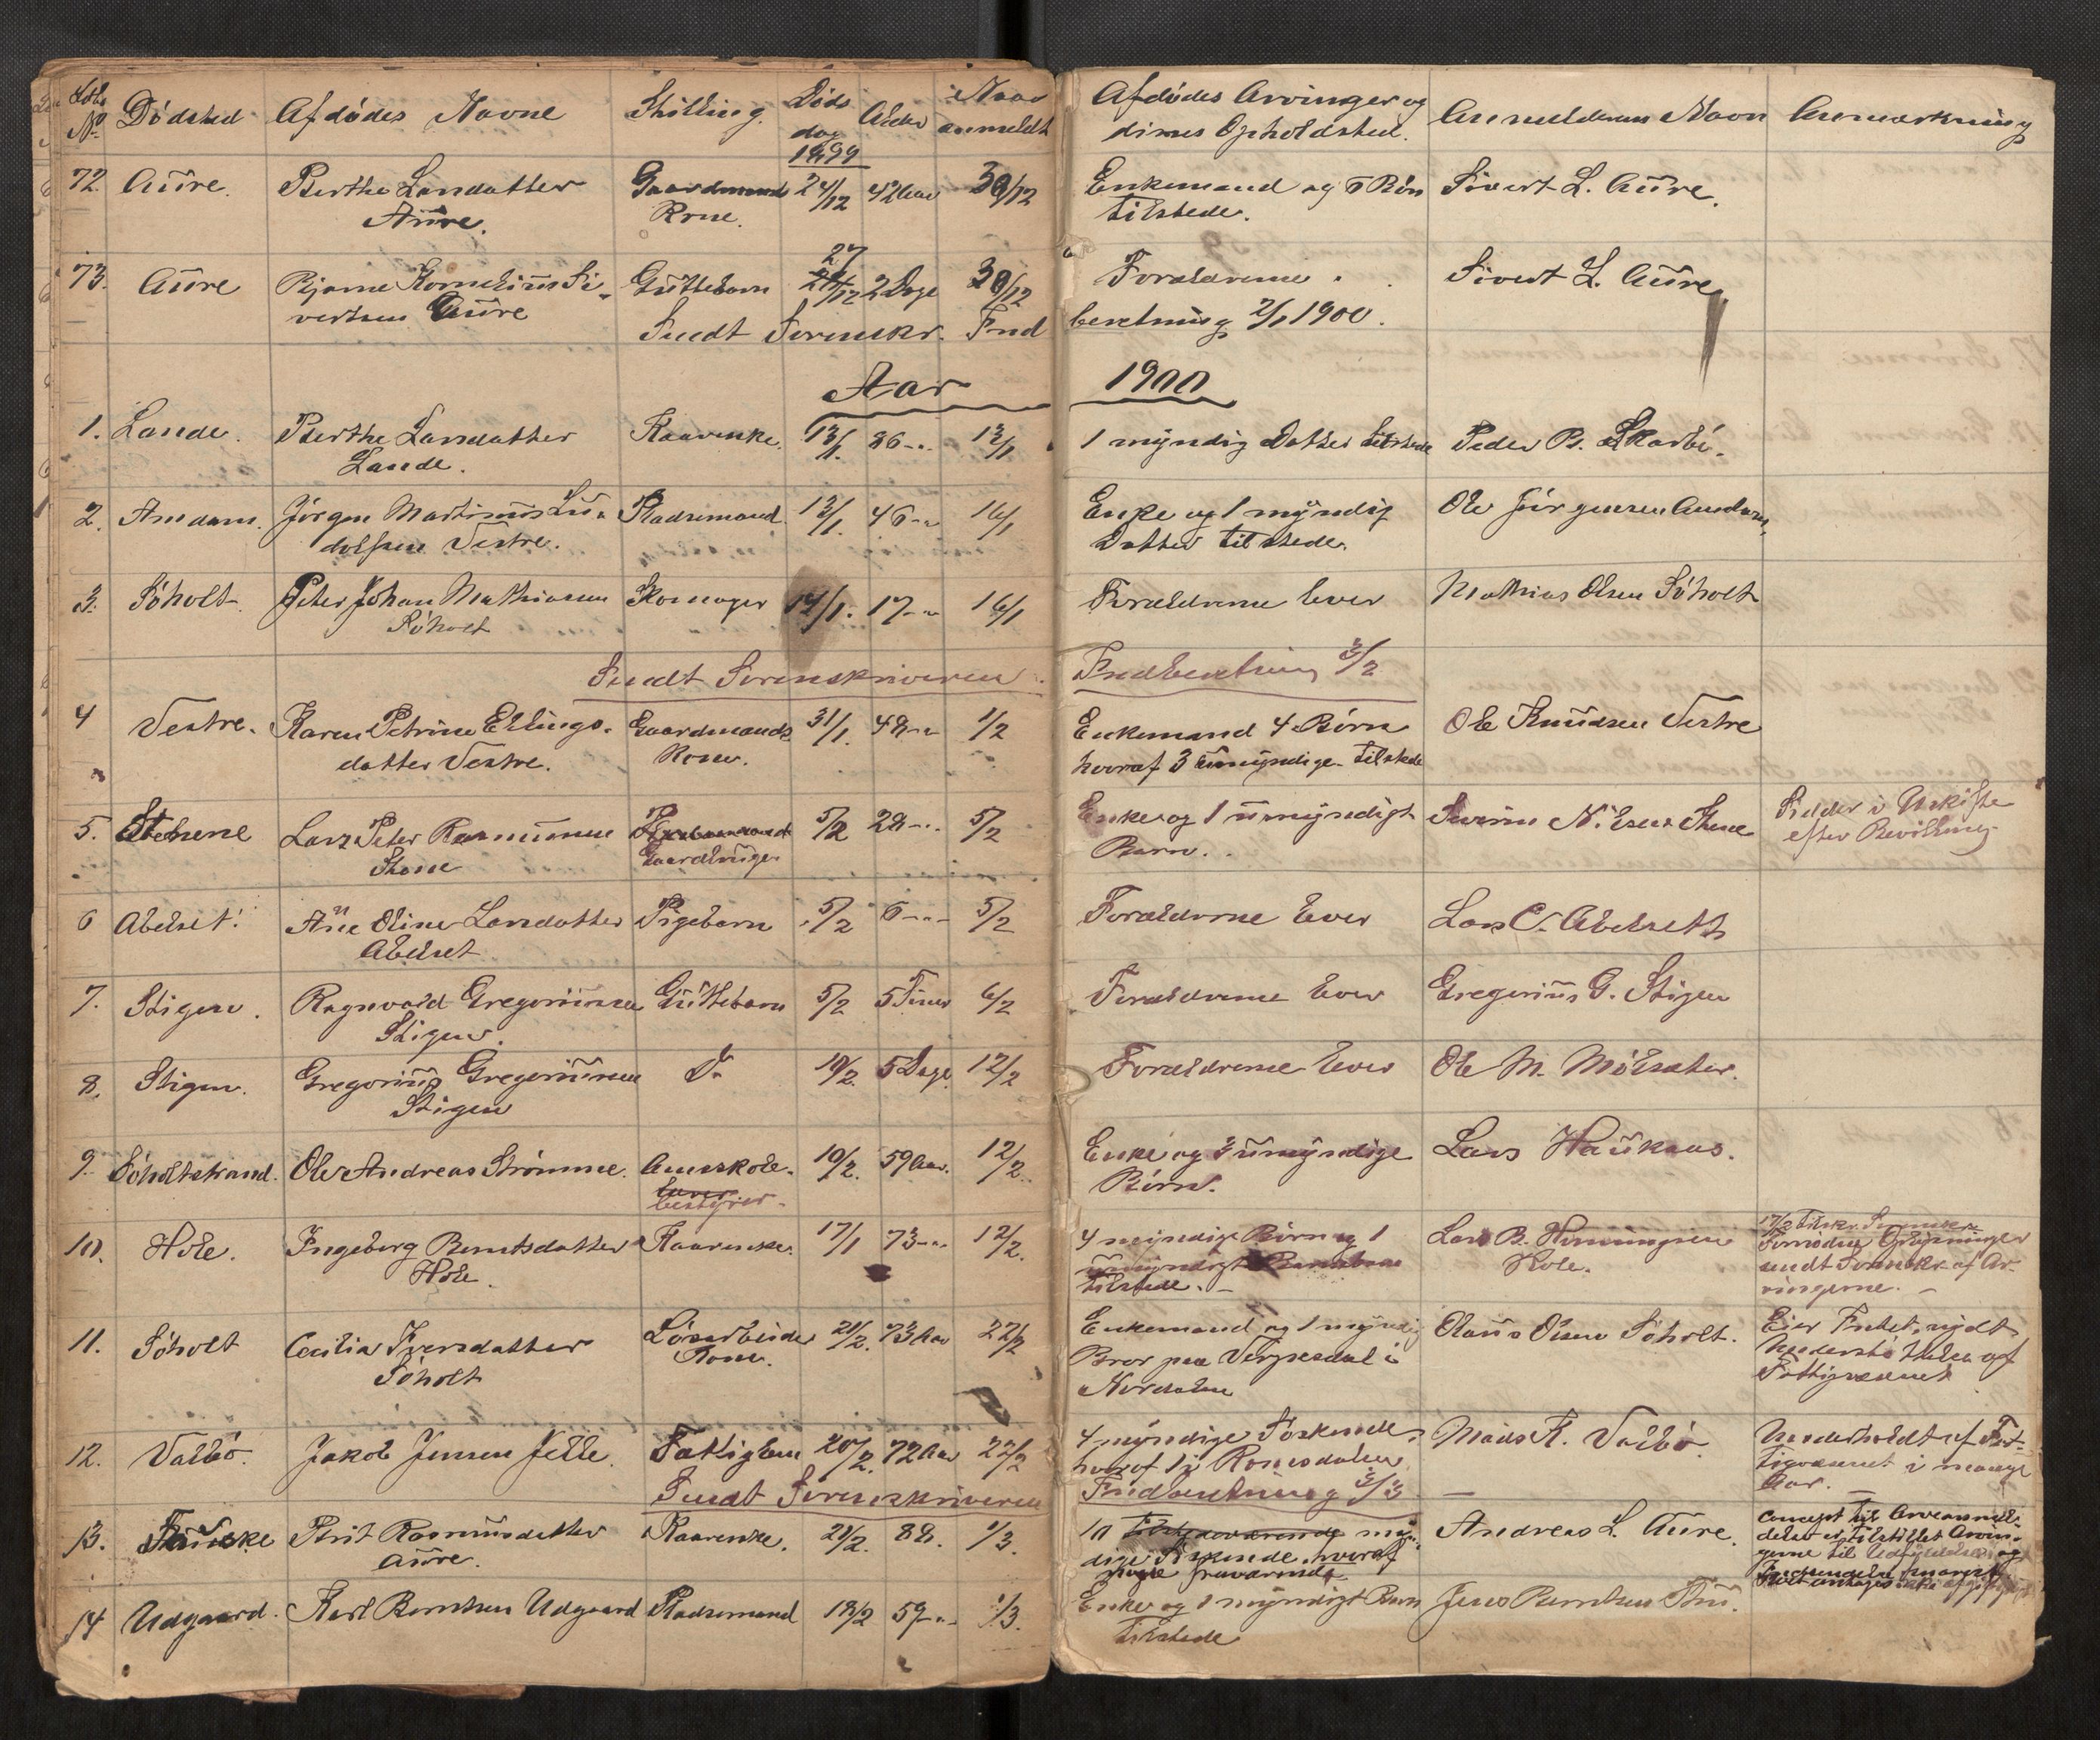 Löbe No. Dödsted Afdödes Navne Stilling. Döds dag Alder Naar anmeldt Afdödes Arvinger og diones Opholdsted. Anmelderens Navn Anmærkning
1899
72. Aure. Berthe Larsdatter Gaardmands 24/12 42 Aar 30/12 Enkemand og 6 Börn Sivert L. Aure.
Aure. Kone. tilstede.
27
73. Aure Bjarne Kornelius Si- Guttebarn /12 2 Dage 30/12 Forældrene. Sivert L. Aure
vertsen Aure
Sendt Sorenskr. Ind beretning 2/1 1900.
Aar 1900
1. Lande. Berthe Larsdatter Kaarenke. 13/1. 86 -"- 13/1 1 myndig Datter tilstede Peder B. Skarbö.
Lande.
2. Amdam. Jörgen Martinus Lu- Pladsemand. 13/1. 46 -"- 16/1 Enke og 1 myndig Ole Jörgensen Amdam,
dolfsen Vestre. Datter tilstede.
3. Söholt Peter Johan Mathiasen Skomager 14/1. 17 -"- 16/1 Forældrene lever Mathias Olsen Söholt
Söholt
Sendt Sorenskriveren Indberetning 3/2
4 Vestre. Karen Petrine Ellings- Gaardmands 31/1. 48 -"- 1/2 Enkemand 4 Börn Ole Knudsen Vestre
datter Vestre. Kone. hvoraf 3 umyndige tilstede
5. Stene Lars Peter Rasmussen 5/2 28 -"- 5/2 Enke og 1 umyndigt Nilsen Stene Sidder i Uskifte
Stene Gaardbruger Barn. efter Bevilling
6 Abelset. Ane Oline Larsdatter Pigebarn 5/2 6 -"- 5/2 Forældrene lever Lars C. Abelseth
Abelset
7. Stigen. Ragnvald Gregoriusen Guttebarn 5/2 5 Timer 6/2 Forældrene lever Gregorius G. Stigen
Stigen.
8. Stigen. Gregorius Gregoriusen Do 10/2. 5 Dage. 12/2 Forældrene lever Ole M. Mölsæter.
Stigen
9. Söholtstrand. Ole Andreas Strömme. Amsskole- 10/2. 59 Aar. 12/2. Enke og 3 umyndige Lars Haukaas.
lærer Börn.
bestyrer.
10. Hole. Ingeborg Berntsdatter Kaarenke. 17/1 73 -"- 12/2. 4 myndige Börn og 1 Lars B. Henningsen
Hole. umyndigt Barnebarn Hole.
tilstede. - Fornödne Oplysninger
sendt Sorenskr. af Ar-
vingerne. -
11. Söholt Cecilia Iversdatter Lösarbeider 21/2. 73 Aar 22/2 Enkemand og 1 myndig Olaus Olsen Söholt. Eier Intet, nydt
Söholt Kone. Bror paa i Understöttelse af
Nordalen Fattigvæsenet
12. Valbö. Jakob Jensen Jelle. Fattiglem 20/2. 72 Aar 22/2 4 myndige Söskende, Mads K. Valbö. Underholdt af Fat-
hvoraf 1 i Romsdalen. tigvæsenet i mange
Sendt Sorenskriveren Indberetning 3/3 Aar. -
13. Berit Rasmusdatter Kaarenke. 21/2. 88. 1/3. 10 myn- Andreas L. Aure. Concept til Arveanmel-
Aure. dige Söskende, hvoraf delse er tilstillet Arvin-
nogle fraværende. gerne til Udfyldelse og
14 Udgaard. Karl Berntsen Udgaard Pladsemand 18/2 59 -"- 1/3. Enke og 1 myndigt Barn Jens Berntsen
tilstede